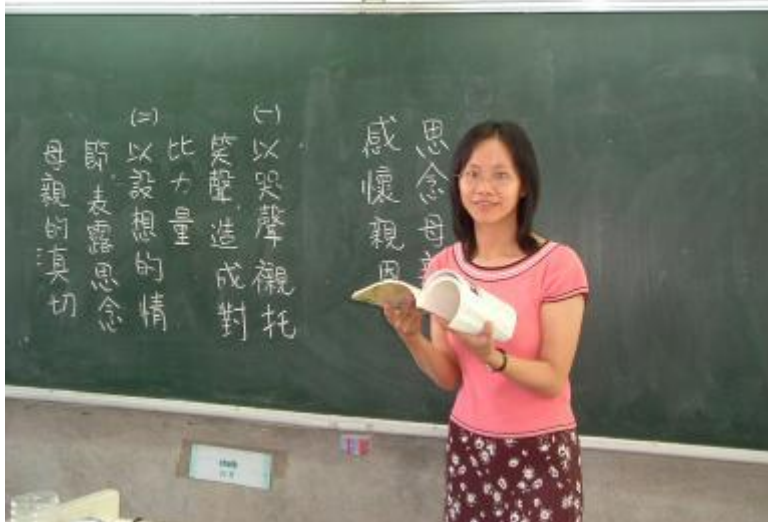 思念母
感懷親
(一)以哭聲襯托
笑聲,造成對
比力量
(二)以設想的情
節,表露思念
母親的真切